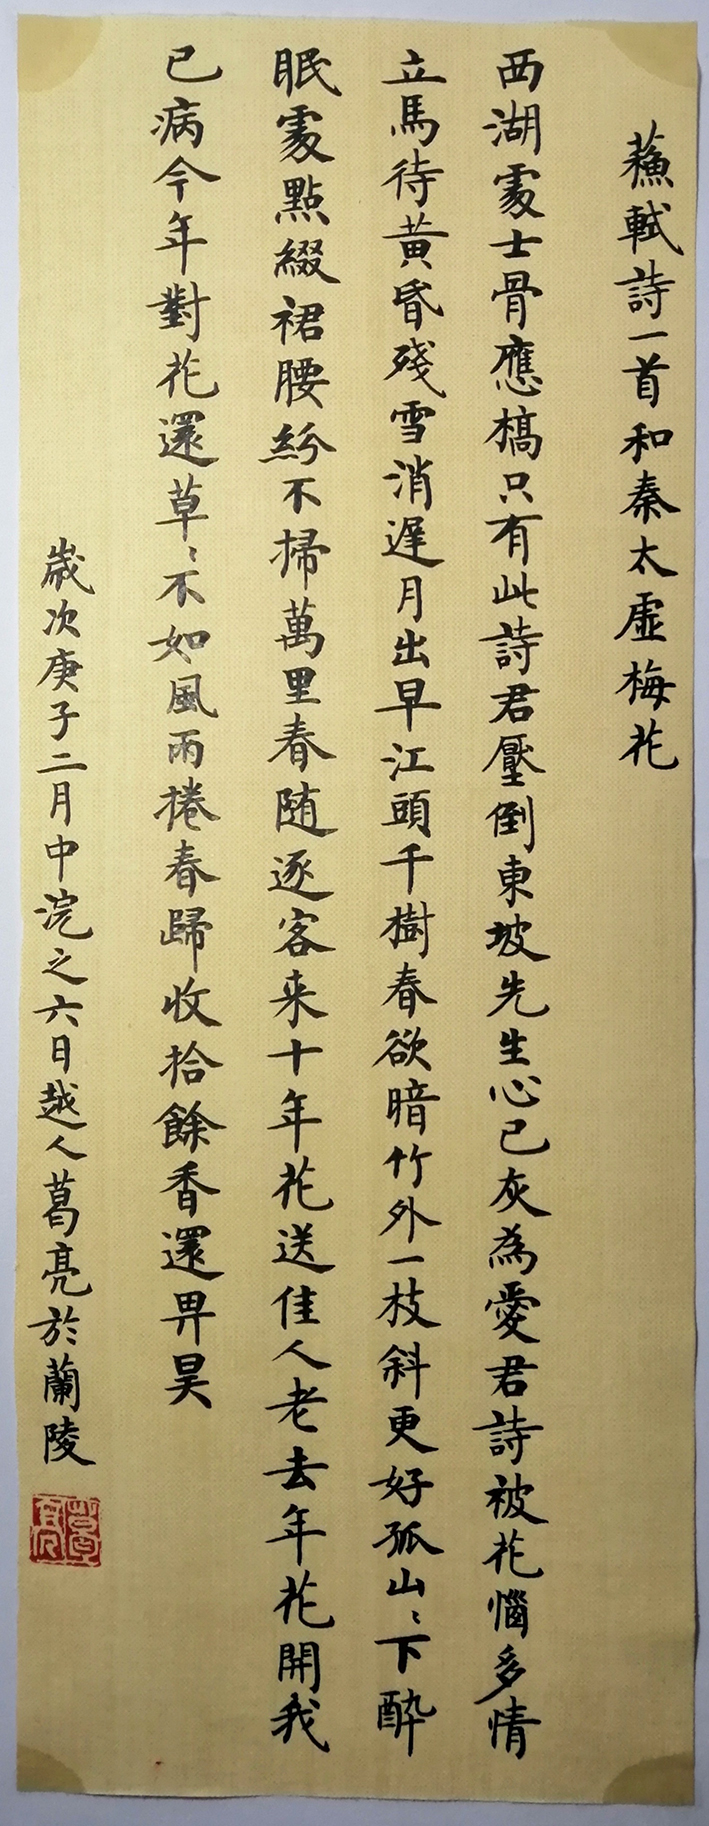 蘓軾詩一首和秦太虛梅花
西湖處士骨應槁只有此詩君壓倒東坡先生心已灰為愛君詩被花惱多情
立馬待黃昏殘雪消遲月出早江頭千樹春欲暗竹外一枝斜更好孤山〻下醉
眠處點綴裙腰紛不掃萬里春隨逐客来十年花送佳人老去年花開我
已病今年對花還草〻不如風雨捲春歸收拾餘香還畀昊
歲次庚子二月中浣之六日越人葛亮於蘭陵
葛亮